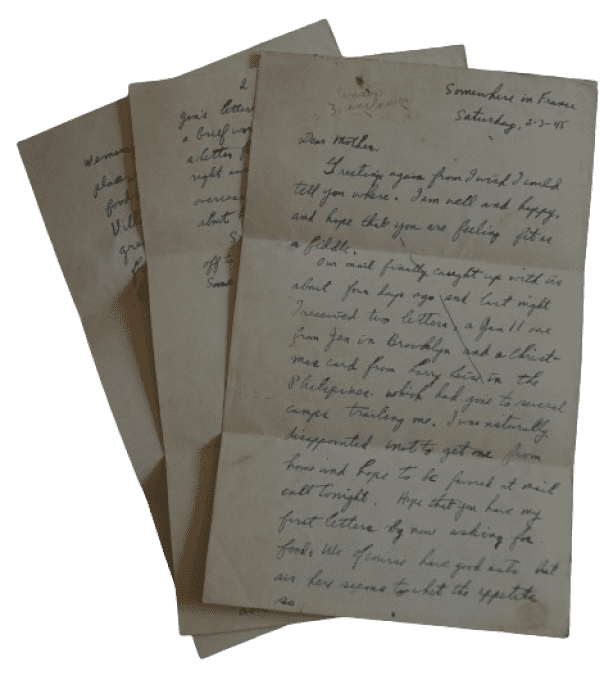 Somewhere in France
Saturday, 2-3-45
Dear Mother,
Greeting again from I wish I could
tell you where. I am well and happy,
and hope that you are feeling fit as
a fiddle.
Our mail finally caught up with us
about four days ago and last night
I received two letters, a Jan 11 one
from Jen in Brooklyn and a Christ-
mas card from Harry in the
Philipines which had gone to several
camps trailing me. I was naturally
disappointed not to get one from
home and hope to be favored at mail
call tonight. Hope that you have my
first letters by now asking for
food. We of course have good eats but
air here seems to whet the appetite
so
2
Jen's letter
a brief
a letter
right
overseas
about
off to
Some
food